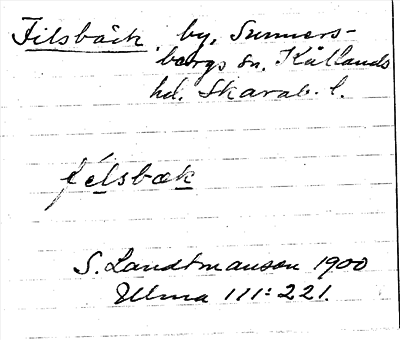 Filsbäck, by, Sunners-
bergs sn. Kållands
hd. Skarab. l.
félsbæk
S. Landtmanson 1900
Ulma 111:221.